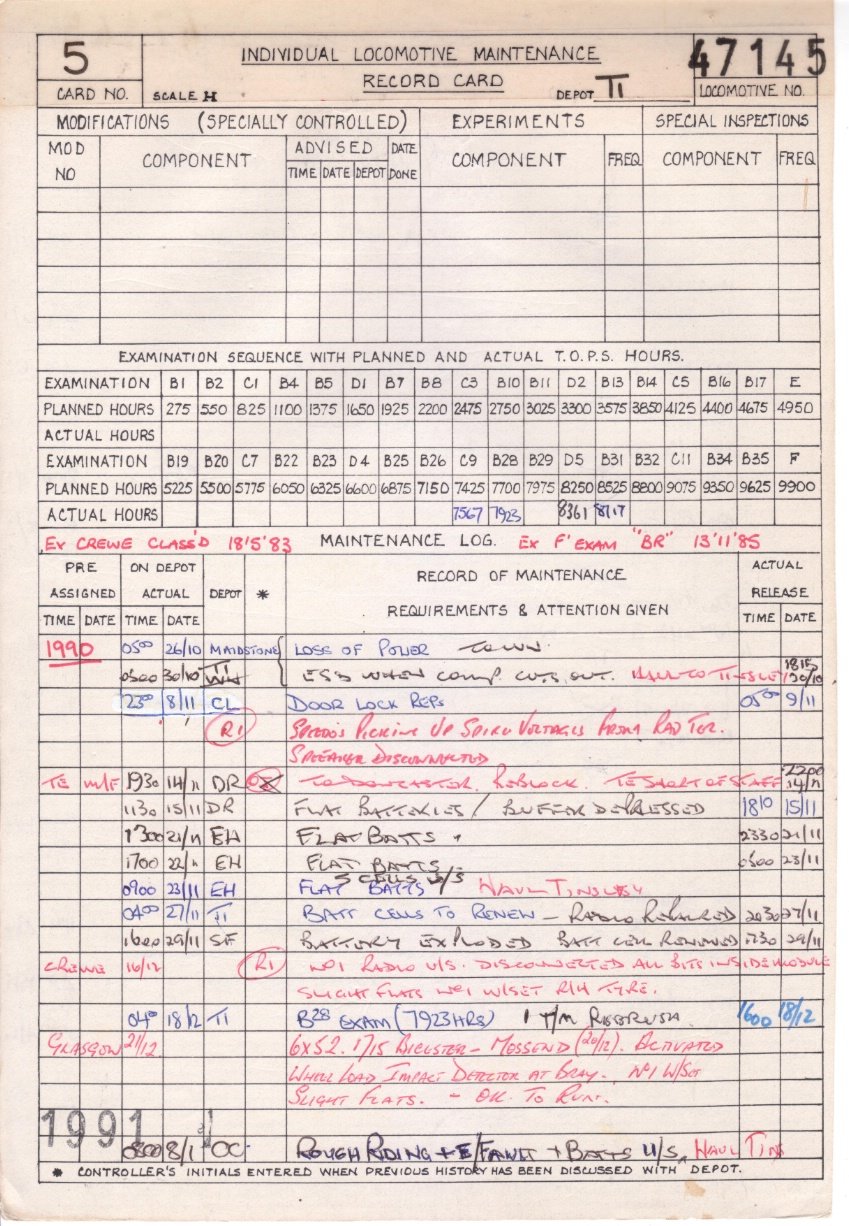 5 INDIVIDUAL LOCOMOTIVE MAINTENANCE 47145
RECORD CARD
CARD NO. SCALE H DEPOT TI LOCOMOTIVE NO.
MODIFICATIONS (SPECIALLY CONTROLLED) EXPERIMENTS SPECIAL INSPECTIONS
MOD NO COMPONENT ADVISED DATE DONE COMPONENT FREQ COMPONENT FREQ
TIME DATE DEPOT
EXAMINATION SEQUENCE WITH PLANNED AND ACTUAL T.O.P.S. HOURS.
EXAMINATION B1 B2 C1 B4 B5 D1 B7 B8 C3 B10 B11 D2 B13 B14 C5 B16 B17 E
PLANNED HOURS 275 550 825 1100 1375 1650 1925 2200 2475 2750 3025 3300 3575 3850 4125 4400 4675 4950
ACTUAL HOURS
EXAMINATION B19 B20 C7 B22 B23 D4 B25 B26 C9 B28 B29 D5 B31 B32 C11 B34 B35 F
PLANNED HOURS 5225 5500 5775 6050 6325 6600 6875 7150 7425 7700 7975 8250 8525 8800 9075 9350 9625 9900
ACTUAL HOURS 7567 7923 8361 8717
EX CREWE CLASS'D 18'5'83 MAINTENANCE LOG. EX F' EXAM "BR" 13'11'85
PRE ASSIGNED ON DEPOT ACTUAL DEPOT * RECORD OF MAINTENANCE REQUIREMENTS & ATTENTION GIVEN ACTUAL RELEASE
TIME DATE TIME DATE TIME DATE
1990 0500 26/10 MAIDSTONE LOSS OF POWER
0500 30/10 TI ESS WHEN COMP CUTS OUT. HAUL TO TINSLEY 1815 30/10
2300 8/11 CL DOOR LOCK REPS 0500 9/11
R1 SPEEDO PICKING UP SPIRU VOLTAGES FROM RAD TER.
SPEAKER DISCONNECTED
TE M/F 1930 14/11 DR TO DONCASTER. REBLOCK. TE SHORT OF STAFF 2200 14/11
1130 15/11 DR FLAT BATTERIES / BUFFER DEPRESSED 1810 15/11
1300 21/11 EH FLAT BATTS. 2330 21/11
1700 22/11 EH FLAT BATTS 0500 23/11
5 CELLS U/S
0900 23/11 EH FLAT BATTS HAUL TINSLEY
0400 27/11 TI BATT CELLS TO RENEW - RADIO REPAIRED 2030 27/11
1600 29/11 SF BATTERY EXPLODED BATT CELL RENEWED 1730 29/11
CREWE 16/12 R1 NO1 RADIO U/S. DISCONNECTED ALL BITS INSIDE MODULE
SLIGHT FLATS NO1 W/SET R/H TYRE.
0400 18/12 TI B28 EXAM (7923HRS) 1 T/M REBRUSH. 1600 18/12
GLASGOW 21/12 6X52. 1715 BICESTER - MOSSEND (20/12). ACTIVATED
WHEEL LOAD IMPACT DETECTOR AT BRAY. NO1 W/SET
SLIGHT FLATS. - OK TO RUN.
1991 0800 8/1 OC ROUGH RIDING + E/FAULT + BATTS U/S HAUL TINS
* CONTROLLER'S INITIALS ENTERED WHEN PREVIOUS HISTORY HAS BEEN DISCUSSED WITH DEPOT.